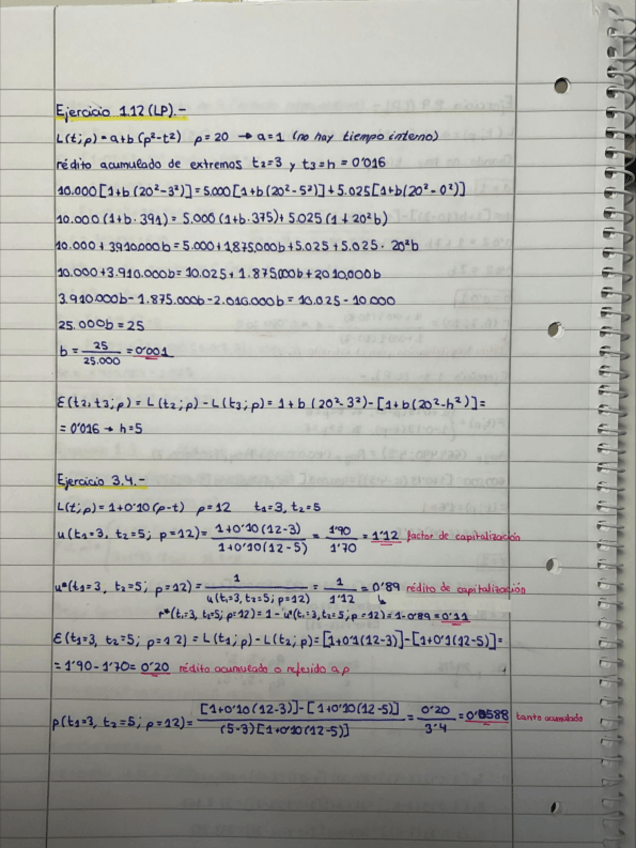 Ejercicio 1.12 (LP).-
L(t;p) = a+b (p²-t²) p=20 → a=1 (no hay tiempo interno)
rédito acumulado de extremos t₂=3 y t₃=h = 0'016
10.000[1+b(20²-3²)] = 5.000[1+b(20²-5²)]+5.025[1+b(20²-0²)]
10.000 (1+b·391) = 5.000 (1+b·375)+5.025 (1+20²b)
10.000 + 3.910.000b = 5.000+1.875.000b+5.025+5.025·20²b
10.000+3.910.000b = 10.025+1.875.000b+2010.000b
3.910.000b-1.875.000b-2.010.000b = 10.025-10.000
25.000b = 25
b = 25/25.000 = 0'001
ε(t₂,t₃;p) = L(t₂;p) - L(t₃;p) = 1+b(20²-3²)-[1+b(20²-h²)] =
= 0'016 → h=5
Ejercicio 3.4.-
L(t;p) = 1+0'10(p-t) p=12 t₁=3, t₂=5
u(t₁=3, t₂=5; p=12) = 1+0'10(12-3)/1+0'10(12-5) = 1'90/1'70 = 1'12 factor de capitalización
u*(t₁=3, t₂=5; p=12) = 1/u(t₁=3, t₂=5; p=12) = 1/1'12 = 0'89 rédito de capitalización
r*(t₁=3, t₂=5; p=12) = 1-u*(t₁=3, t₂=5; p=12) = 1-0'89 = 0'11
ε(t₁=3, t₂=5; p=12) = L(t₁;p) - L(t₂;p) = [1+0'1(12-3)]-[1+0'1(12-5)] =
= 1'90-1'70 = 0'20 rédito acumulado o referido a p
ρ(t₁=3, t₂=5; p=12) = [1+0'10(12-3)]-[1+0'10(12-5)]/(5-3)[1+0'10(12-5)] = 0'20/3'4 = 0'0588 tanto acumulado